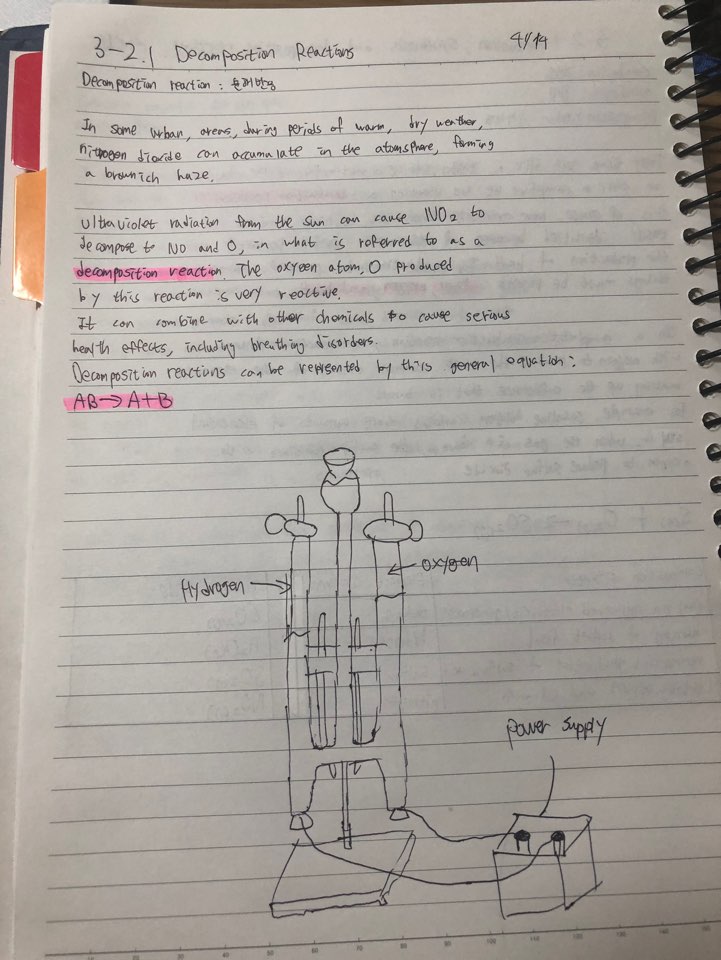 3-2.1 Decomposition Reactions 4/14
Decomposition reaction : 분해반응
In some urban, areas, during periods of warm, dry weather,
nitrogen dioxide can accumulate in the atomsphere, forming
a brownich haze.
Ultraviolet radiation from the sun can cause NO2 to
decompose to NO and O, in what is referred to as a
decomposition reaction. The oxygen atom, O produced
by this reaction is very reactive.
It can combine with other chemicals to cause serious
health effects, including breathing disorders.
Decomposition reactions can be represented by this general equation :
AB → A + B
Hydrogen
oxygen
power supply